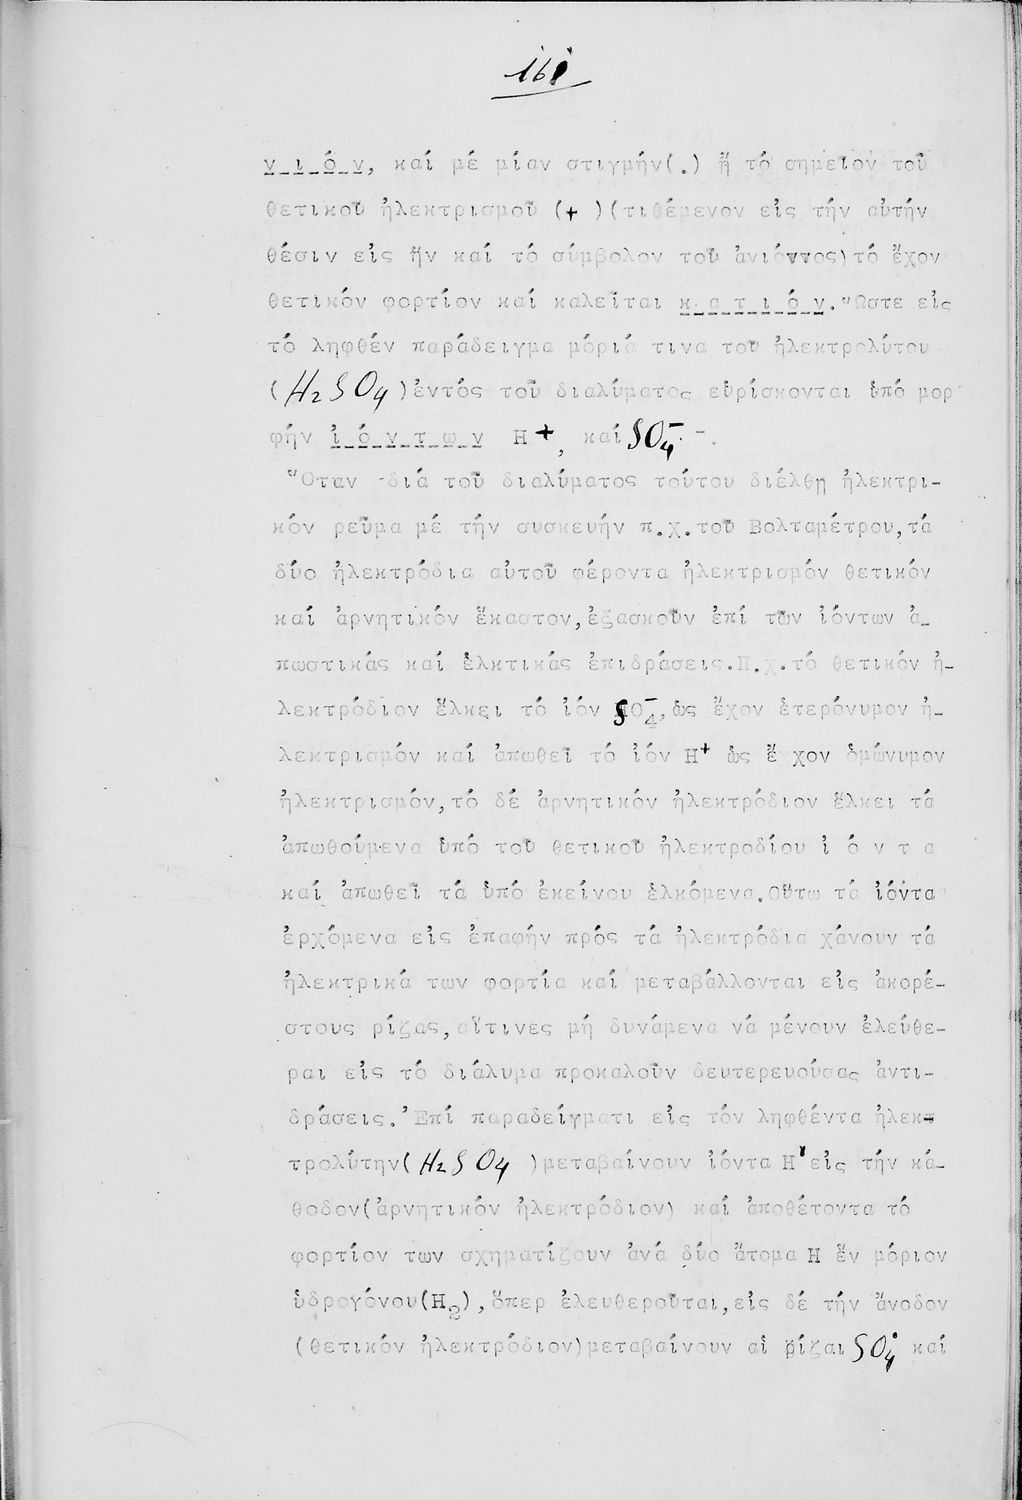 161
ν ι ό ν, καί μέ μίαν στιγμήν(.) ἤ τό σημεῖον τοῦ
θετικοῦ ἠλεκτρισμοῦ (+ )(τιθέμενον εἰς τήν αὐτήν
θέσιν εἰς ἥν καί τό σύμβολον τοῦ ἀνιόντος)τό ἔχον
θετικόν φορτίον καί καλεῖται κ α τ ι ό ν. Ὥστε εἰς
τό ληφθέν παράδειγμα μόριά τινα τοῦ ἠλεκτρολύτου
(H₂SO₄)ἐντός τοῦ διαλύματος εὑρίσκονται ὑπό μορ
φήν ἰ ό ν τ ω ν H⁺, καί SO₄⁻ ⁻.
Ὅταν διά τοῦ διαλύματος τούτου διέλθῃ ἠλεκτρι-
κόν ρεῦμα μέ τήν συσκευήν π.χ.τοῦ Βολταμέτρου,τά
δύο ἠλεκτρόδια αὐτοῦ φέροντα ἠλεκτρισμόν θετικόν
καί ἀρνητικόν ἕκαστον,ἐξασκοῦν ἐπί τῶν ἰόντων ἀ-
πωστικάς καί ἑλκτικάς ἐπιδράσεις.Π.χ.τό θετικόν ἠ-
λεκτρόδιον ἕλκει τό ἰόν SO₄⁻,ὡς ἔχον ἑτερόνυμον ἠ-
λεκτρισμόν καί ἀπωθεῖ τό ἰόν H⁺ ὡς ἔχον ὁμώνυμον
ἠλεκτρισμόν,τό δέ ἀρνητικόν ἠλεκτρόδιον ἕλκει τά
ἀπωθούμενα ὑπό τοῦ θετικοῦ ἠλεκτροδίου ἰ ό ν τ α
καί ἀπωθεῖ τά ὑπό ἐκείνου ἑλκόμενα.Οὕτω τά ἰόντα
ἐρχόμενα εἰς ἐπαφήν πρός τά ἠλεκτρόδια χάνουν τά
ἠλεκτρικά των φορτία καί μεταβάλλονται εἰς ἀκορέ-
στους ρίζας,αἵτινες μή δυνάμενα νά μένουν ἐλεύθε-
ραι εἰς τό διάλυμα προκαλοῦν δευτερευούσας ἀντι-
δράσεις.Ἐπί παραδείγματι εἰς τόν ληφθέντα ἠλεκ-
τρολύτην(H₂SO₄ )μεταβαίνουν ἰόντα H⁺εἰς τήν κά-
θοδον(ἀρνητικόν ἠλεκτρόδιον) καί ἀποθέτοντα τό
φορτίον των σχηματίζουν ἀνά δύο ἄτομα H ἕν μόριον
ὑδρογόνου(H₂),ὅπερ ἐλευθεροῦται,εἰς δέ τήν ἄνοδον
(θετικόν ἠλεκτρόδιον)μεταβαίνουν αἱ ρίζαι SO₄ καί